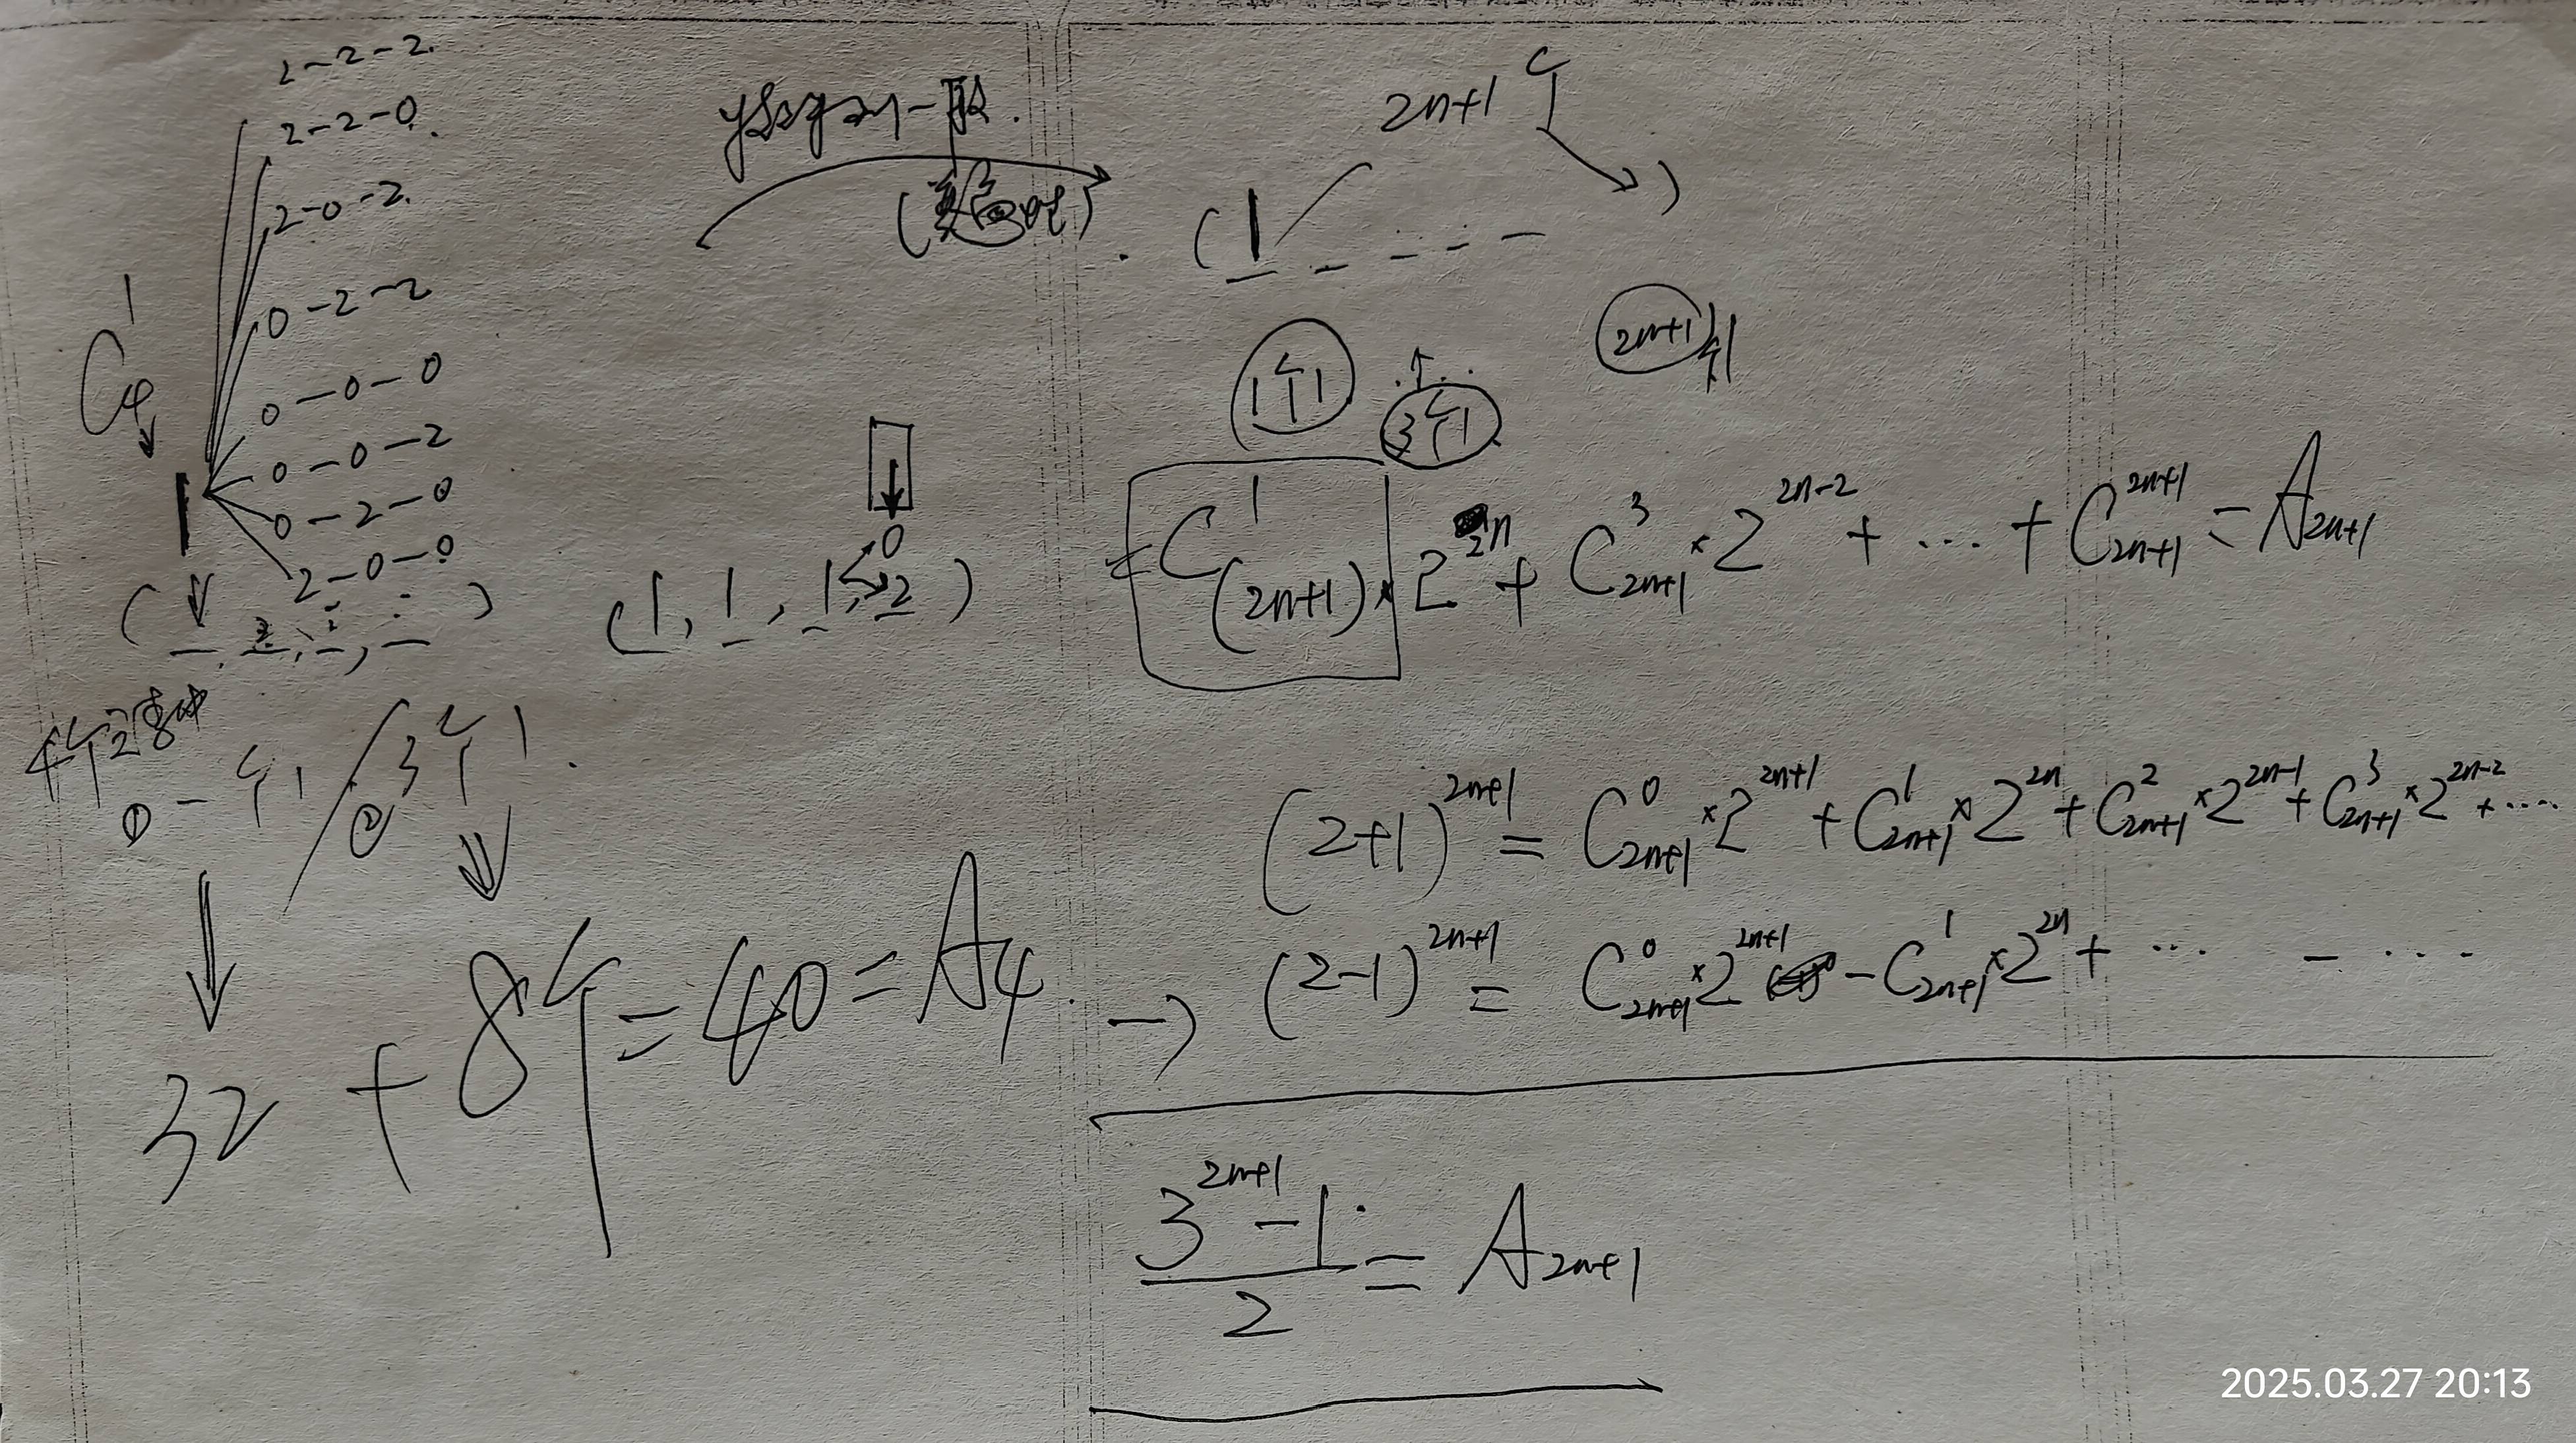 2-2-2.
2-2-0.
2-0-2.
0-2-2
0-0-0
0-0-2
0-2-0
2-0-0
C₄¹
1
(1, 1, 1, 0
2)
4个
① 一个1 / ② 3个1.
32 + 8个 = 40 = A₄.
一般.
2n+1个
(1 _ _ _ _ _)
1个1
3个1
2n+1个1
C¹₍₂ₙ₊₁₎ × 2²ⁿ + C³₂ₙ₊₁ × 2²ⁿ⁻² + ... + C²ⁿ⁺¹₂ₙ₊₁ = A₂ₙ₊₁
(2+1)²ⁿ⁺¹ = C⁰₂ₙ₊₁ × 2²ⁿ⁺¹ + C¹₂ₙ₊₁ × 2²ⁿ + C²₂ₙ₊₁ × 2²ⁿ⁻¹ + C³₂ₙ₊₁ × 2²ⁿ⁻² + ....
→ (2-1)²ⁿ⁺¹ = C⁰₂ₙ₊₁ × 2²ⁿ⁺¹ - C¹₂ₙ₊₁ × 2²ⁿ + ... - ....
(3²ⁿ⁺¹ - 1)/2 = A₂ₙ₊₁
2025.03.27 20:13